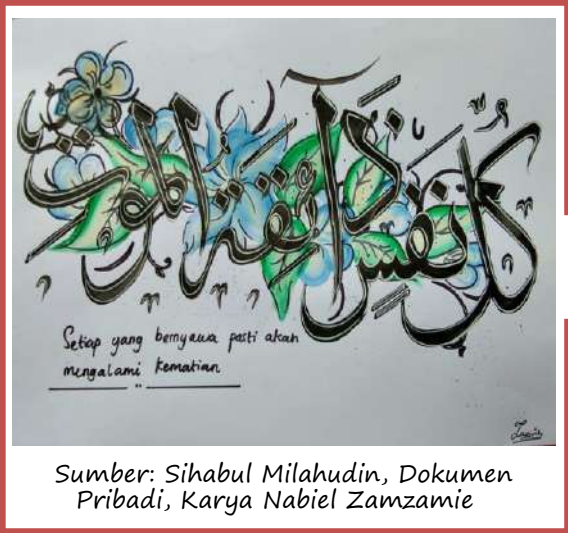 كُلُّ نَفْسٍ ذَآئِقَةُ الْمَوْتِ
Setiap yang bernyawa pasti akan
mengalami kematian
Sumber: Sihabul Milahudin, Dokumen
Pribadi, Karya Nabiel Zamzamie